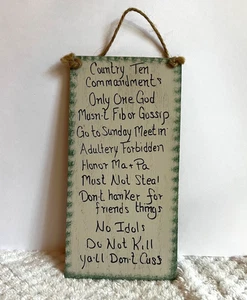 Country Ten
Commandments
Only One God
Masn't Fib or Gossip
Go to Sunday Meetin
Adultery Forbidden
Honor Ma + Pa
Must Not Steal
Don't hanker for
friends things
No Idols
Do Not Kill
ya'll Don't Cuss